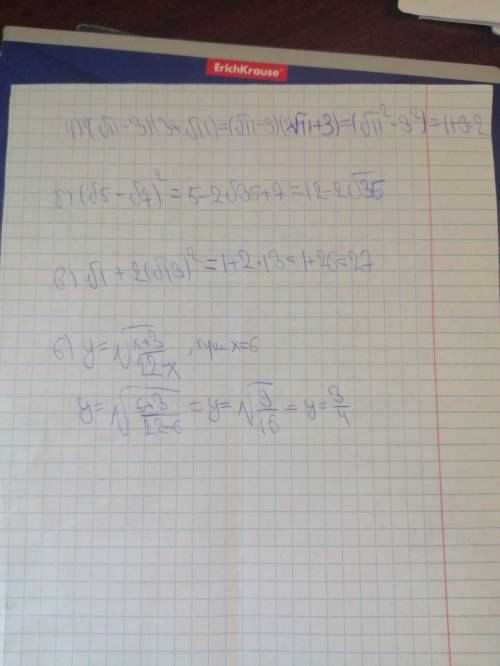 ErichKrause
(√11-3)(3+√11)=(√11-3)(√11+3)=(√11²-3²)=11-9=2
б)(√5-√7)²=5-2√35+7=12-2√35
в)√1+2(√13)²=1+2·13=1+26=27
6) y=√(x+3)/(22-x), при x=6
y=√(6+3)/(22-6)=y=√9/16=y=3/4